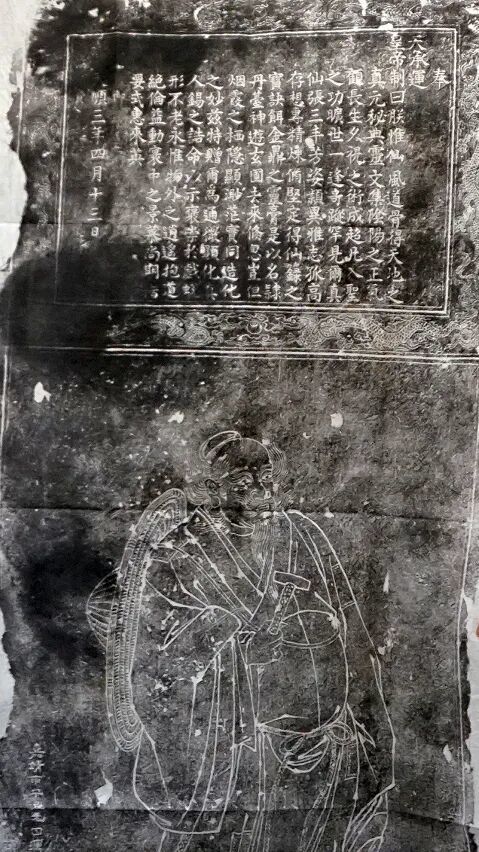 奉
天承運
皇帝制曰朕惟仙風道骨得天地之
真元秘典靈文集陰陽之正氣
顧長生久視之術成超凡入聖
之功曠世一逢奇蹤罕見爾真
仙張三丰芳姿穎異雅志孤高
存想專精煉脩堅定得仙籙之
寶訣餌金鼎之靈膏是以名隸
丹臺神遊玄圃去來倏忽豈但
烟霞之栖隱顯渺茫實同造化
之妙茲特贈爾為通微顯化
人錫之誥命以示褒崇於戲
形不老永惟物外之逍遙抱道
絕倫益動衷中之景慕尚
要式惠來英
順三年四月十三日
嘉靖甲子